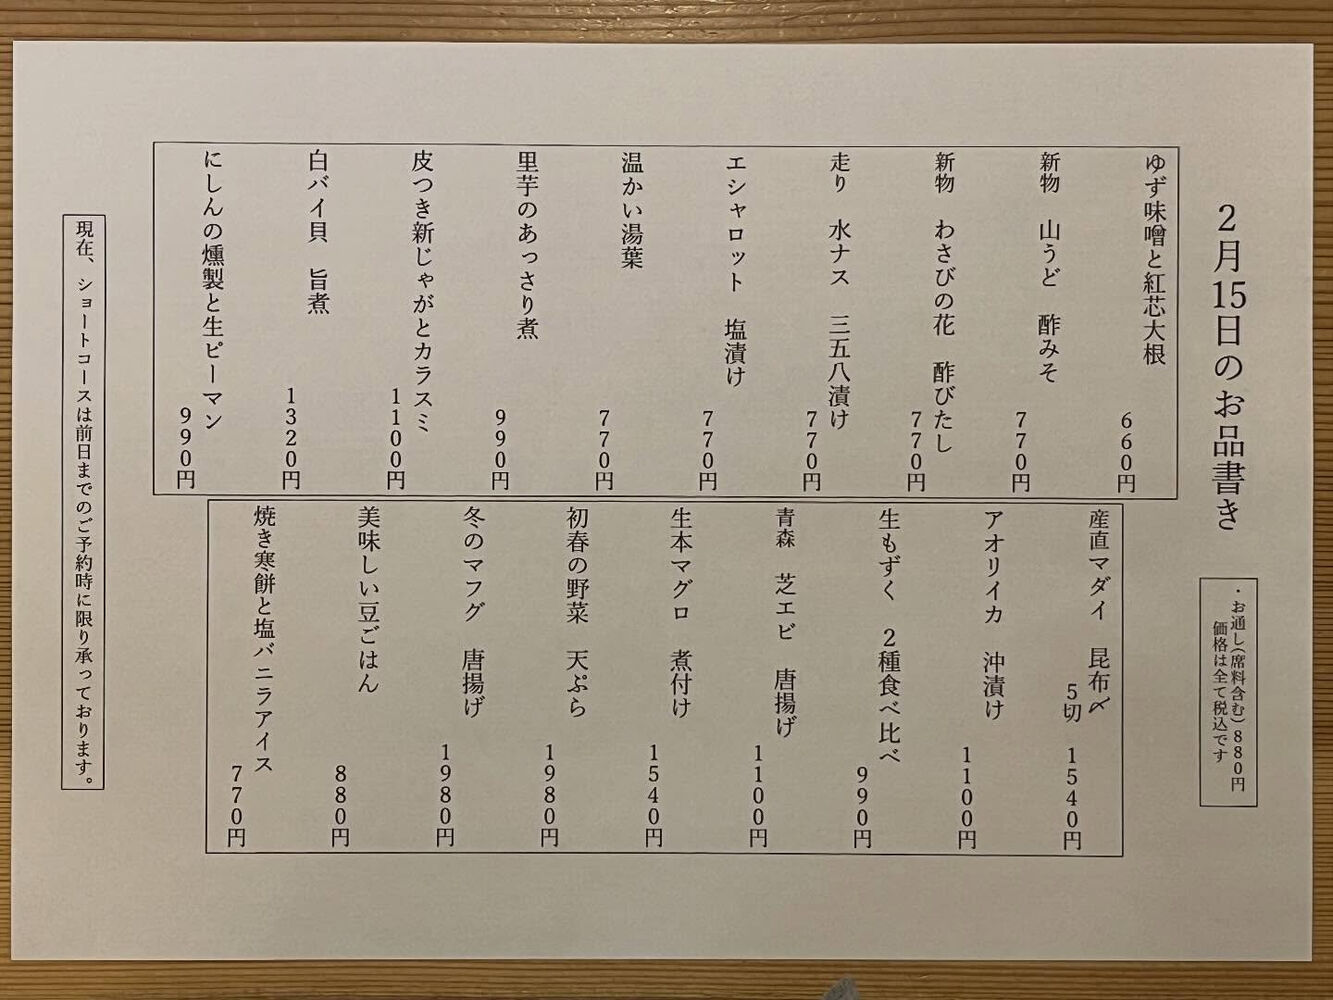 2月15日のお品書き
・お通し(席料含む)880円
価格は全て税込です
ゆず味噌と紅芯大根
660円
新物 山うど 酢みそ
770円
新物 わさびの花 酢びたし
770円
走り 水ナス 三五八漬け
770円
エシャロット 塩漬け
770円
温かい湯葉
770円
里芋のあっさり煮
990円
皮つき新じゃがとカラスミ
1100円
白バイ貝 旨煮
1320円
にしんの燻製と生ピーマン
990円
産直マダイ 昆布〆
5切 1540円
アオリイカ 沖漬け
1100円
生もずく 2種食べ比べ
990円
青森 芝エビ 唐揚げ
1100円
生本マグロ 煮付け
1540円
初春の野菜 天ぷら
1980円
冬のマフグ 唐揚げ
1980円
美味しい豆ごはん
880円
焼き寒餅と塩バニラアイス
770円
現在、ショートコースは前日までのご予約時に限り承っております。